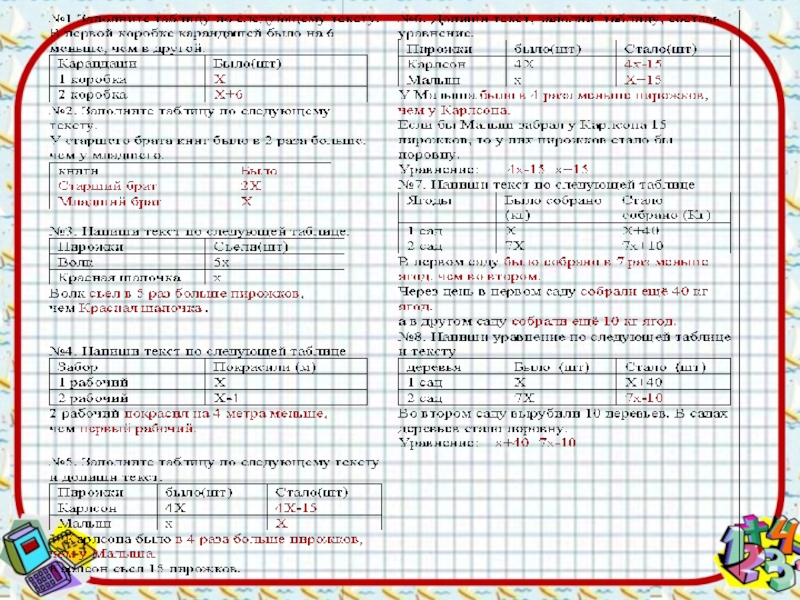 №1 Заполните таблицу по следующему тексту.
В первой коробке карандашей было на 6
меньше, чем в другой.
Карандаши Было(шт)
1 коробка Х
2 коробка Х+6
№2. Заполните таблицу по следующему
тексту.
У старшего брата книг было в 2 раза больше,
чем у младшего.
книги Было
Старший брат 2Х
Младший брат Х
№3. Напиши текст по следующей таблице.
Пирожки Съели(шт)
Волк 5х
Красная шапочка х
Волк съел в 5 раз больше пирожков,
чем Красная шапочка .
№4. Напиши текст по следующей таблице
Забор Покрасили (м)
1 рабочий Х
2 рабочий Х-4
2 рабочий покрасил на 4 метра меньше,
чем первый рабочий.
№5. Заполните таблицу по следующему тексту
и допиши текст.
Пирожки было(шт) Стало(шт)
Карлсон 4Х 4Х-15
Малыш х Х
Карлсона было в 4 раза больше пирожков,
чем у Малыша.
Карлсон съел 15 пирожков.
№6. Допиши текст, таблицу, составь
уравнение.
Пирожки было(шт) Стало(шт)
Карлсон 4Х 4х-15
Малыш х Х+15
У Малыша было в 4 раза меньше пирожков,
чем у Карлсона.
Если бы Малыш забрал у Карлсона 15
пирожков, то у них пирожков стало бы
поровну.
Уравнение: 4х-15 х+15
№7. Напиши текст по следующей таблице
Ягоды Было собрано (кг) Стало собрано (Кг)
1 сад Х Х+40
2 сад 7Х 7х+10
В первом саду было собрано в 7 раз меньше
ягод, чем во втором.
Через день в первом саду собрали ещё 40 кг
ягод,
а в другом саду собрали ещё 10 кг ягод.
№8. Напиши уравнение по следующей таблице
и тексту
деревья Было (шт) Стало (шт)
1 сад Х Х+40
2 сад 7Х 7х-10
Во втором саду вырубили 10 деревьев. В садах
деревьев стало поровну.
Уравнение: х+40 7х-10